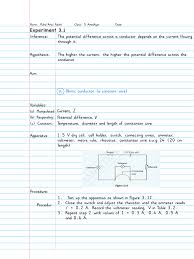 Class: 5 Amanjaya
Date:
Experiment 3.1
Inference: The potential difference across a conductor depends on the current flowing through it.
Hypothesis: The higher the current, the higher the potential difference across the conductor
Aim:
(i) Ohmic conductor (a constantan wire)
Variables:
(a) Manipulated: Current, I
(b) Responding: Potential difference, V
(c) Constant: Temperature, diameter and length of constantan wire
Apparatus 1.5 V dry cell, cell holder, switch, connecting wires, ammeter,
voltmeter, rheostat, metre rule, constantan wire s.w.g. 24 (20 cm
length).
Procedure:
Procedur
1. Set up the apparatus as shown in Figure 3.11.
2. Close the switch and adjust the rheostat until the ammeter reads
I = 0.2 A. Record the reading voltmeter, V in Table 3.2.
3. Repeat step 2 with values of I = 0.3 A, 0.4 A, 0.5 A
and 0.6 A.